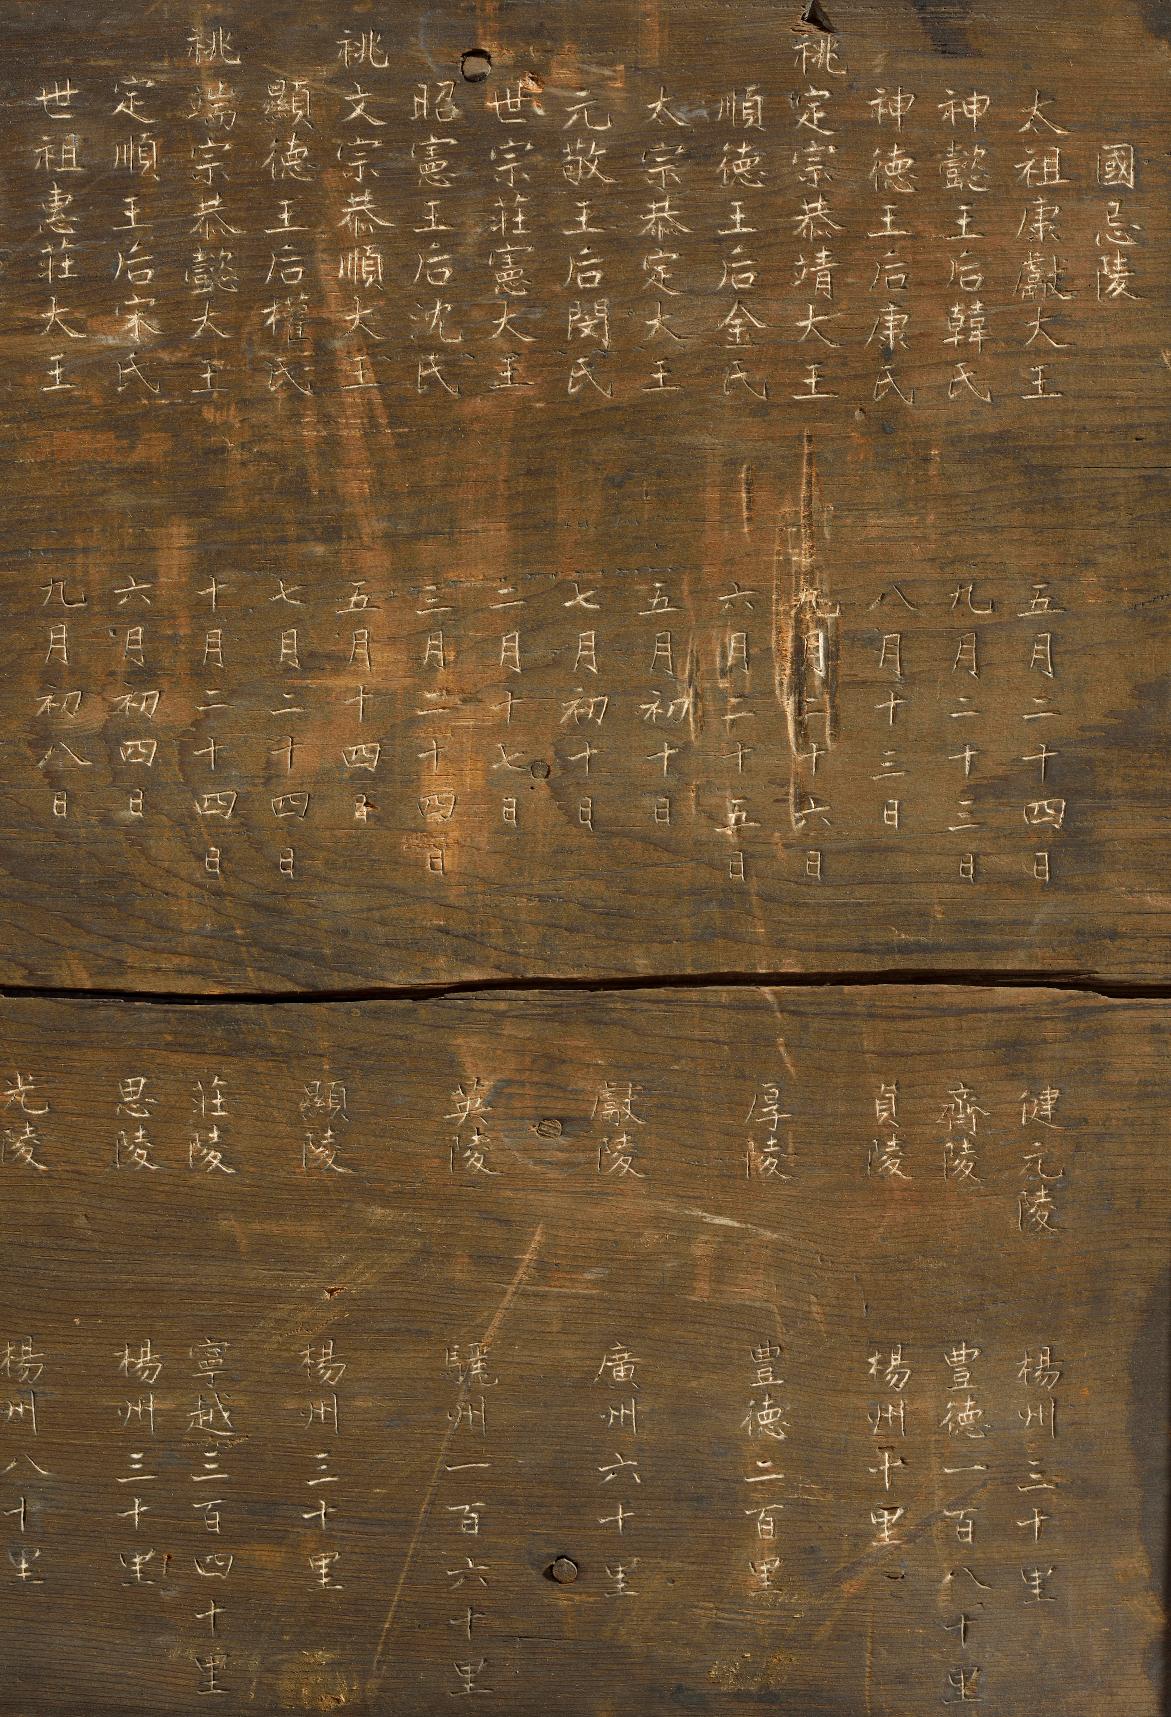 國忌陵
太祖康獻大王 五月二十四日 健元陵 楊州三十里
神懿王后韓氏 九月二十三日 齊陵 豊德一百八十里
神德王后康氏 八月十三日 貞陵 楊州十里
祧定宗恭靖大王 九月二十六日
順德王后金氏 六月二十五日
厚陵 豊德二百里
太宗恭定大王 五月初十日
元敬王后閔氏 七月初十日
獻陵 廣州六十里
世宗莊憲大王 二月十七日
昭憲王后沈氏 三月二十四日
英陵 驪州一百六十里
祧文宗恭順大王 五月十四日
顯德王后權氏 七月二十四日
顯陵 楊州三十里
祧端宗恭懿大王 十月二十四日 莊陵 寧越三百四十里
定順王后宋氏 六月初四日 思陵 楊州三十里
世祖惠莊大王 九月初八日
光陵 楊州八十里